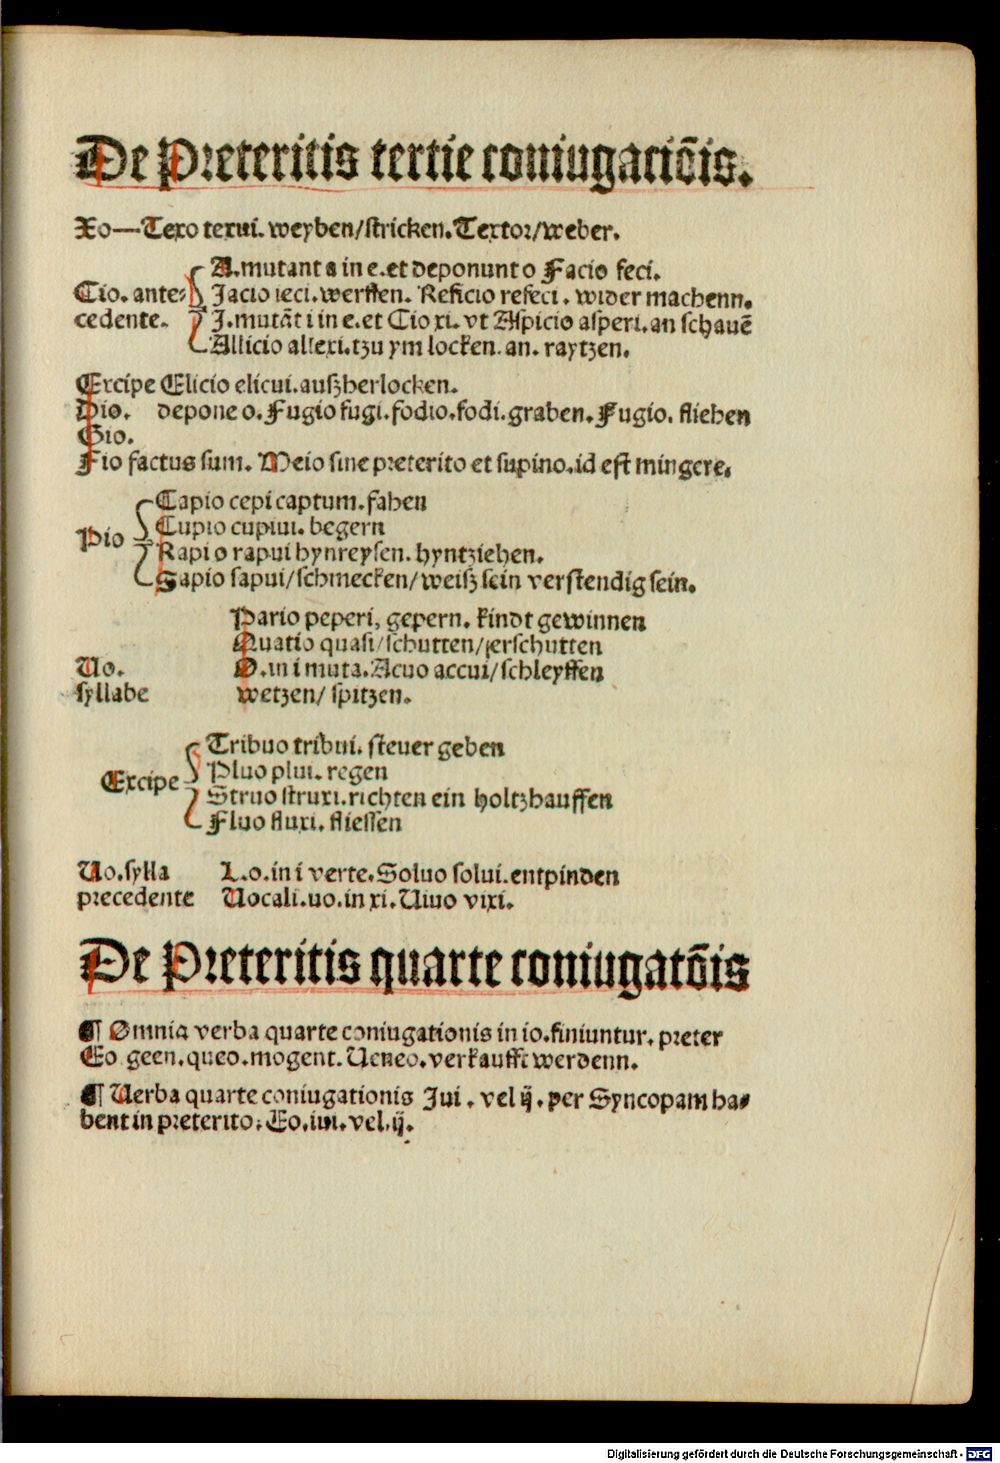 De Preteritis tertie coniugaciōis.
Xo—Texo texui. weyben/stricken. Textor/weber.
A. mutant a in e. et deponunt o Facio feci.
Cio. ante⸗ Jacio ieci. werffen. Reficio refeci. wider machenn.
cedente. J. mutāt i in e. et Cio xi. vt Aspicio asperi. an schauē
Allicio allexi. tzu ym locken. an. raytzen.
Excipe Elicio elicui. außherlocken.
Dio. depone o. Fugio fugi. fodio. fodi. graben. Fugio. fliehen
Gio.
Fio factus sum. Meio sine preterito et supino. id est mingere.
Capio cepi captum. fahen
Pio Cupio cupiui. begern
Rapio rapui hynreysen. hyntziehen.
Sapio sapui/schmecken/weiß sein verstendig sein.
Pario peperi, gepern. kindt gewinnen
Quatio quasi/schutten/zerschutten
Uo. O. in i muta. Acuo accui/schleyffen
syllabe wetzen/spitzen.
Tribuo tribui. steuer geben
Excipe Pluo plui. regen
Struo struxi. richten ein holtzhauffen
Fluo fluxi. fliessen
Uo. sylla L. o. in i verte. Soluo solui. entpinden
precedente Uocali. uo. in xi. Uiuo vixi.
De Preteritis quarte coniugatōis
¶ Omnia verba quarte coniugationis in io. finiuntur. preter
Eo geen. queo. mogent. Ueneo. verkaufft werdenn.
¶ Uerba quarte coniugationis Jui. vel ij. per Syncopam ha⸗
bent in preterito. Eo. iui. vel. ij.
Digitalisierung gefördert durch die Deutsche Forschungsgemeinschaft - DFG